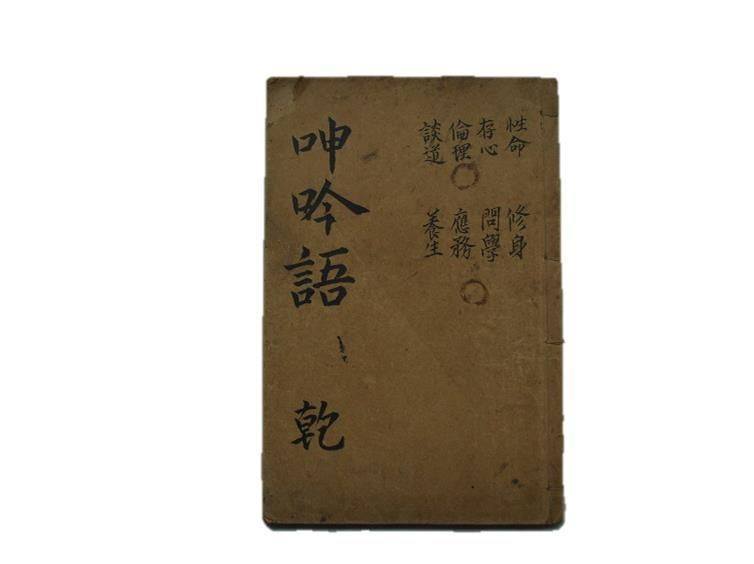 性命
存心
倫理
談道
修身
問學
應務
養生
呻吟語
乾